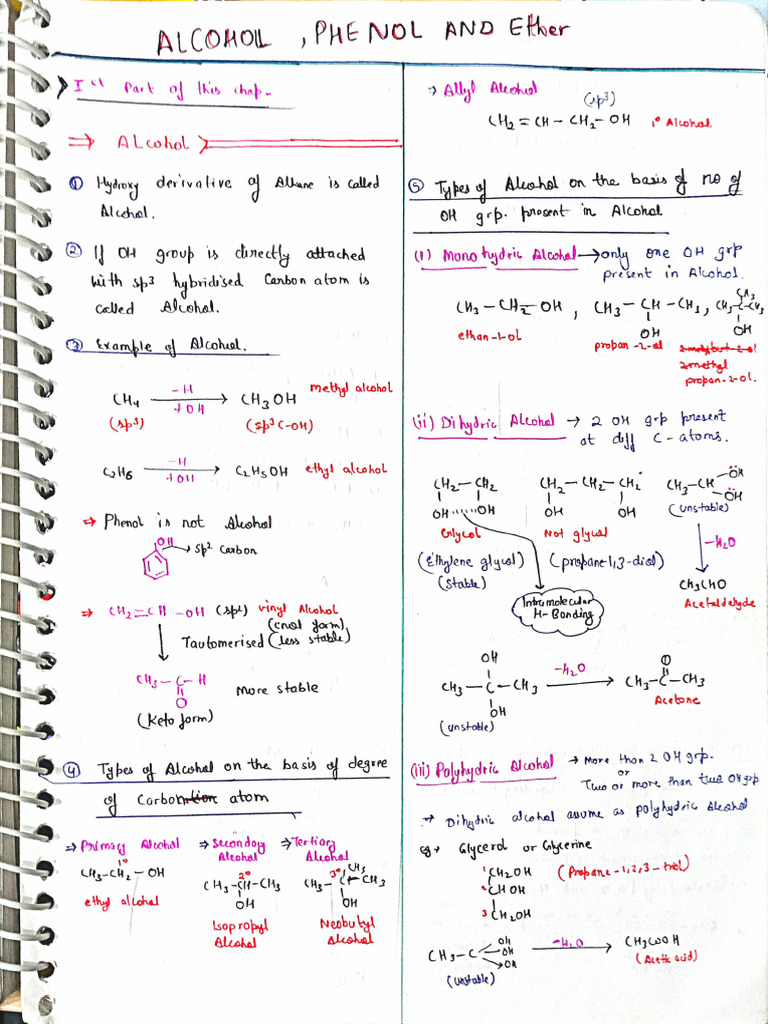 ALCOHOL, PHENOL AND Ether
Ist Part of this chap-
⇒ Alcohol
① Hydroxy derivative of Alkane is called
Alcohol.
② If OH group is directly attached
with sp3 hybridised Carbon atom is
called Alcohol.
③ Example of Alcohol.
CH4 -H +OH → CH3OH methyl alcohol
(sp3) (sp3 C-OH)
C2H6 -H +OH → C2H5OH ethyl alcohol
⇒ Phenol is not Alcohol
OH → sp2 carbon
⇒ CH2=CH-OH (sp2) vinyl Alcohol
(enol form)
Tautomerised (less stable)
CH3-C-H
O
More stable
(Keto form)
④ Types of Alcohol on the basis of degree
of Carbon atom
⇒ Primary Alcohol ⇒ Secondary Alcohol ⇒ Tertiary Alcohol
1° 2° 3° CH3
CH3-CH2-OH CH3-CH-CH3 CH3-C-CH3
OH OH
ethyl alcohol Isopropyl Alcohol Neobutyl Alcohol
→ Allyl Alcohol
(sp3)
CH2=CH-CH2-OH 1° Alcohol.
⑤ Types of Alcohol on the basis of no of
OH grp. present in Alcohol
(i) Monohydric Alcohol → only one OH grp
present in Alcohol.
CH3
CH3-CH2-OH, CH3-CH-CH3, CH3-C-CH3
OH OH
ethan-1-ol propan-2-ol
2-methyl
propan-2-ol.
(ii) Dihydric Alcohol → 2 OH grp present
at diff C-atoms.
CH2-CH2 CH2-CH2-CH2 CH3-CH OH
OH OH OH OH OH
Glycol Not glycol (unstable)
-H2O
(Ethylene glycol) (propane-1,3-diol)
(stable)
CH3CHO
Acetaldehyde
Intramolecular
H-Bonding
OH
CH3-C-CH3 -H2O → CH3-C-CH3
OH O
(unstable) Acetone
(iii) Polyhydric Alcohol → More than 2 OH grp.
or
Two or more than two OH grp
→ Dihydric alcohol assume as polyhydric Alcohol
eg → Glycerol or Glycerine
1 CH2OH (Propane-1,2,3-triol)
2 CHOH
3 CH2OH
CH3-C OH OH OH -H2O → CH3COOH
(unstable) (Acetic acid)